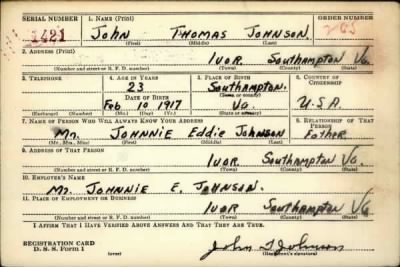 SERIAL NUMBER 1. NAME (Print) ORDER NUMBER
1421 John Thomas Johnson
(First) (Middle) (Last)
2. ADDRESS (Print)
Ivor Southampton Va.
(Number and street or R. F. D. number) (Town) (County) (State)
3. TELEPHONE 4. AGE IN YEARS 5. PLACE OF BIRTH 6. COUNTRY OF CITIZENSHIP
23 Southampton.
DATE OF BIRTH (Town or county)
Feb 10 1917 Va. U.S.A.
(Exchange) (Number) (Mo.) (Day) (Yr.) (State or country)
7. NAME OF PERSON WHO WILL ALWAYS KNOW YOUR ADDRESS 8. RELATIONSHIP OF THAT PERSON
Mr. Johnnie Eddie Johnson Father
(Mr., Mrs., Miss) (First) (Middle) (Last)
9. ADDRESS OF THAT PERSON
Ivor Southampton Va.
(Number and street or R. F. D. number) (Town) (County) (State)
10. EMPLOYER'S NAME
Mr. Johnnie E. Johnson.
11. PLACE OF EMPLOYMENT OR BUSINESS
Ivor Southampton Va.
(Number and street or R. F. D. number) (Town) (County) (State)
I AFFIRM THAT I HAVE VERIFIED ABOVE ANSWERS AND THAT THEY ARE TRUE.
REGISTRATION CARD
D. S. S. Form 1 (over) John T Johnson
(Registrant's signature)